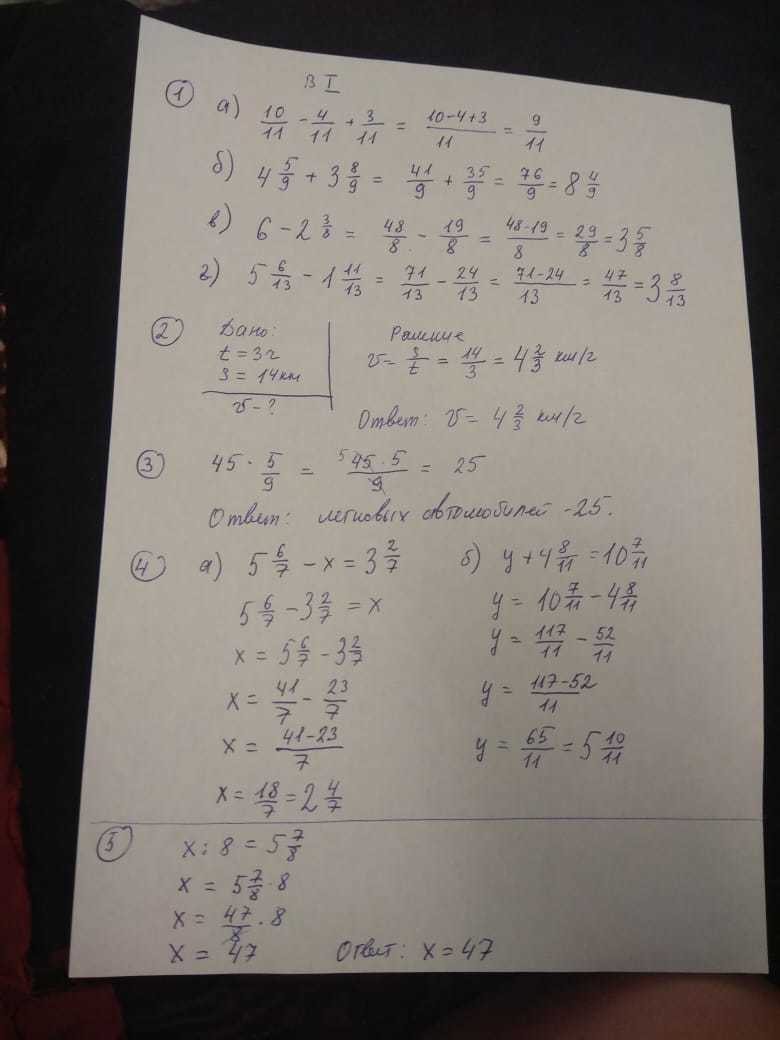 В I
1 а) 10/11 - 4/11 + 3/11 = (10-4+3)/11 = 9/11
б) 4 5/9 + 3 8/9 = 41/9 + 35/9 = 76/9 = 8 4/9
в) 6 - 2 3/8 = 48/8 - 19/8 = (48-19)/8 = 29/8 = 3 5/8
г) 5 6/13 - 1 11/13 = 71/13 - 24/13 = (71-24)/13 = 47/13 = 3 8/13
2 Дано:
t = 3ч
S = 14км
v - ?
Решние
v = S/t = 14/3 = 4 2/3 км/г
Ответ: v = 4 2/3 км/г
3 45 · 5/9 = (5 45 · 5)/9 = 25
Ответ: легковых автомобилей - 25.
4 а) 5 6/7 - x = 3 2/7
5 6/7 - 3 2/7 = x
x = 5 6/7 - 3 2/7
x = 41/7 - 23/7
x = (41-23)/7
x = 18/7 = 2 4/7
б) y + 4 8/11 = 10 7/11
y = 10 7/11 - 4 8/11
y = 117/11 - 52/11
y = (117-52)/11
y = 65/11 = 5 10/11
5 x : 8 = 5 7/8
x = 5 7/8 · 8
x = 47/8 · 8
x = 47
Ответ: x = 47